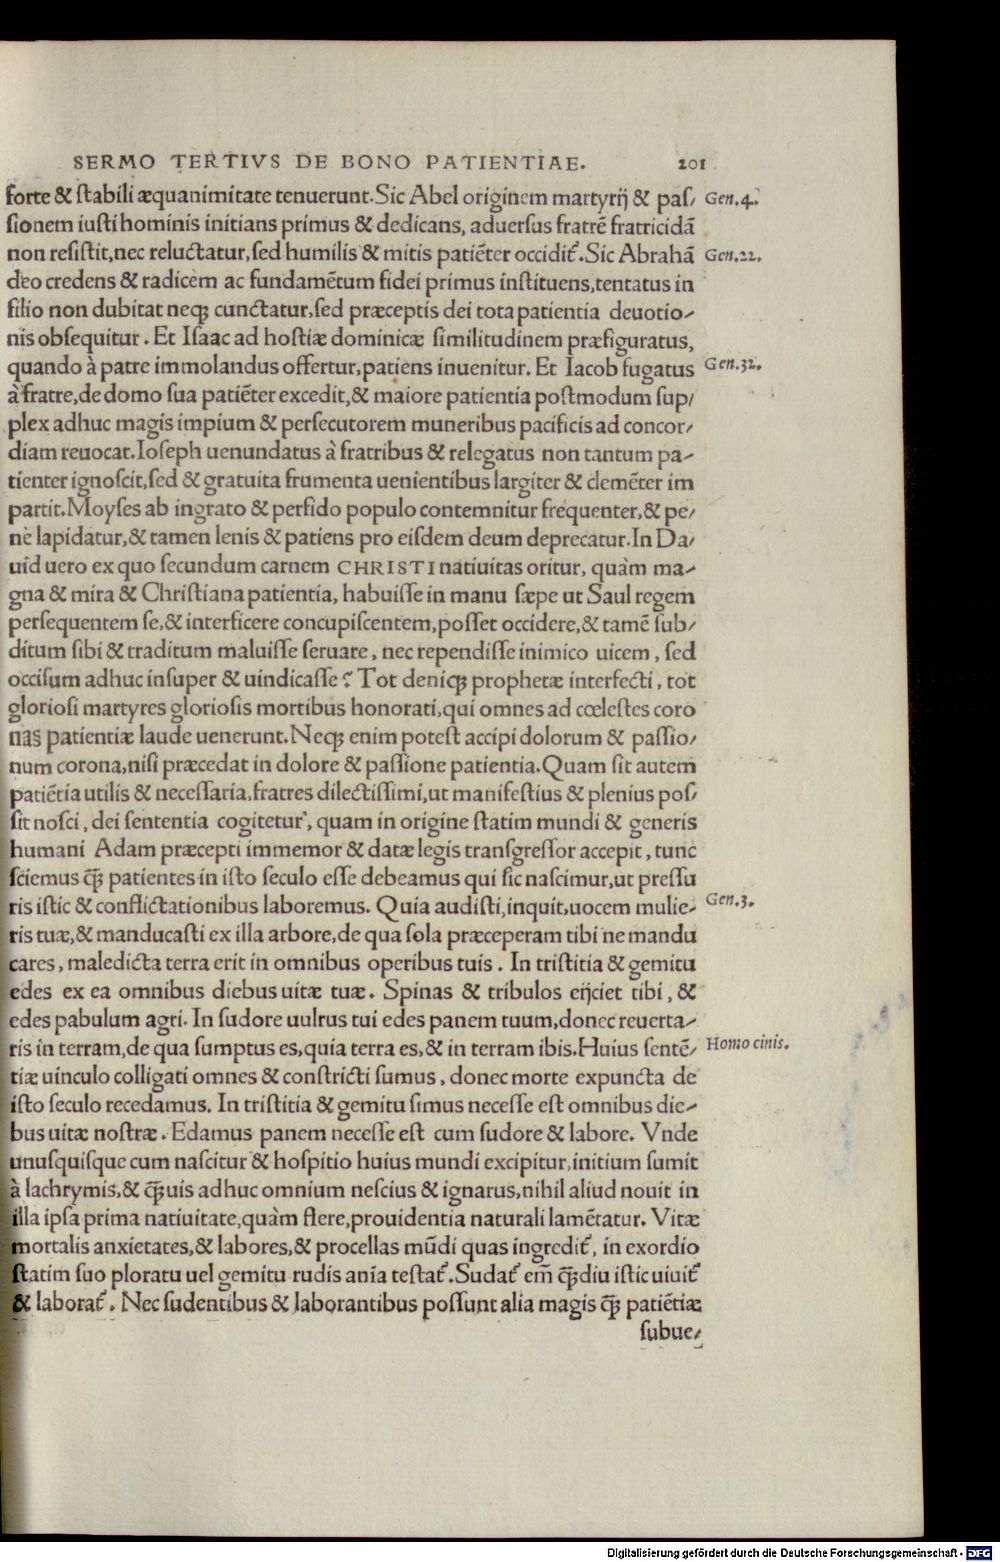 SERMO TERTIVS DE BONO PATIENTIAE. 201
forte & ſtabili æquanimitate tenuerunt. Sic Abel originem martyrĳ & paſ/ Gen.4.
ſionem iuſti hominis initians primus & dedicans, aduerſus fratrē fratricidā
non reſiſtit, nec reluctatur, ſed humilis & mitis patiēter occidit᷑. Sic Abrahā Gen.22.
deo credens & radicem ac fundamētum fidei primus inſtituens, tentatus in
filio non dubitat neq; cunctatur, ſed præceptis dei tota patientia deuotio-
nis obſequitur. Et Iſaac ad hoſtiæ dominicæ ſimilitudinem præfiguratus,
quando à patre immolandus offertur, patiens inuenitur. Et Iacob fugatus Gen.32.
à fratre, de domo ſua patiēter excedit, & maiore patientia poſtmodum ſup/
plex adhuc magis impium & perſecutorem muneribus pacificis ad concor/
diam reuocat. Ioſeph uenundatus à fratribus & relegatus non tantum pa-
tienter ignoſcit, ſed & gratuita frumenta uenientibus largiter & clemēter im
partit. Moyſes ab ingrato & perfido populo contemnitur frequenter, & pe/
ne lapidatur, & tamen lenis & patiens pro eiſdem deum deprecatur. In Da/
uid uero ex quo ſecundum carnem CHRISTI natiuitas oritur, quàm ma-
gna & mira & Chriſtiana patientia, habuiſſe in manu ſæpe ut Saul regem
perſequentem ſe, & interficere concupiſcentem, poſſet occidere, & tamē ſub/
ditum ſibi & traditum maluiſſe ſeruare, nec rependiſſe inimico uicem, ſed
occiſum adhuc inſuper & uindicaſſe? Tot deniq; prophetæ interfecti, tot
glorioſi martyres glorioſis mortibus honorati, qui omnes ad cœleſtes coro
nas patientiæ laude uenerunt. Neq; enim poteſt accipi dolorum & paſſio/
num corona, niſi præcedat in dolore & paſſione patientia. Quam ſit autem
patiētia utilis & neceſſaria, fratres dilectiſſimi, ut manifeſtius & plenius poſ/
ſit noſci, dei ſententia cogitetur, quam in origine ſtatim mundi & generis
humani Adam præcepti immemor & datæ legis tranſgreſſor accepit, tunc
ſciemus q̄; patientes in iſto ſeculo eſſe debeamus qui ſic naſcimur, ut preſſu
ris iſtic & conflictationibus laboremus. Quia audiſti, inquit, uocem mulie- Gen.3.
ris tuæ, & manducaſti ex illa arbore, de qua ſola præceperam tibi ne mandu
cares, maledicta terra erit in omnibus operibus tuis. In triſtitia & gemitu
edes ex ea omnibus diebus uitæ tuæ. Spinas & tribulos eĳciet tibi, &
edes pabulum agri. In ſudore uulrus tui edes panem tuum, donec reuerta-
ris in terram, de qua ſumptus es, quia terra es, & in terram ibis. Huius ſentē/ Homo cinis.
tiæ uinculo colligati omnes & conſtricti ſumus, donec morte expuncta de
iſto ſeculo recedamus. In triſtitia & gemitu ſimus neceſſe eſt omnibus die-
bus uitæ noſtræ. Edamus panem neceſſe eſt cum ſudore & labore. Vnde
unuſquiſque cum naſcitur & hoſpitio huius mundi excipitur, initium ſumit
à lachrymis, & q̄;uis adhuc omnium neſcius & ignarus, nihil aliud nouit in
illa ipſa prima natiuitate, quàm flere, prouidentia naturali lamētatur. Vitæ
mortalis anxietates, & labores, & procellas mūdi quas ingredit᷑, in exordio
ſtatim ſuo ploratu uel gemitu rudis anīa teſtat᷑. Sudat᷑ em̄ q̄;diu iſtic uiuit᷑
& laborat᷑. Nec ſudentibus & laborantibus poſſunt alia magis q̄; patiētiæ
ſubue/
Digitalisierung gefördert durch die Deutsche Forschungsgemeinschaft - DFG